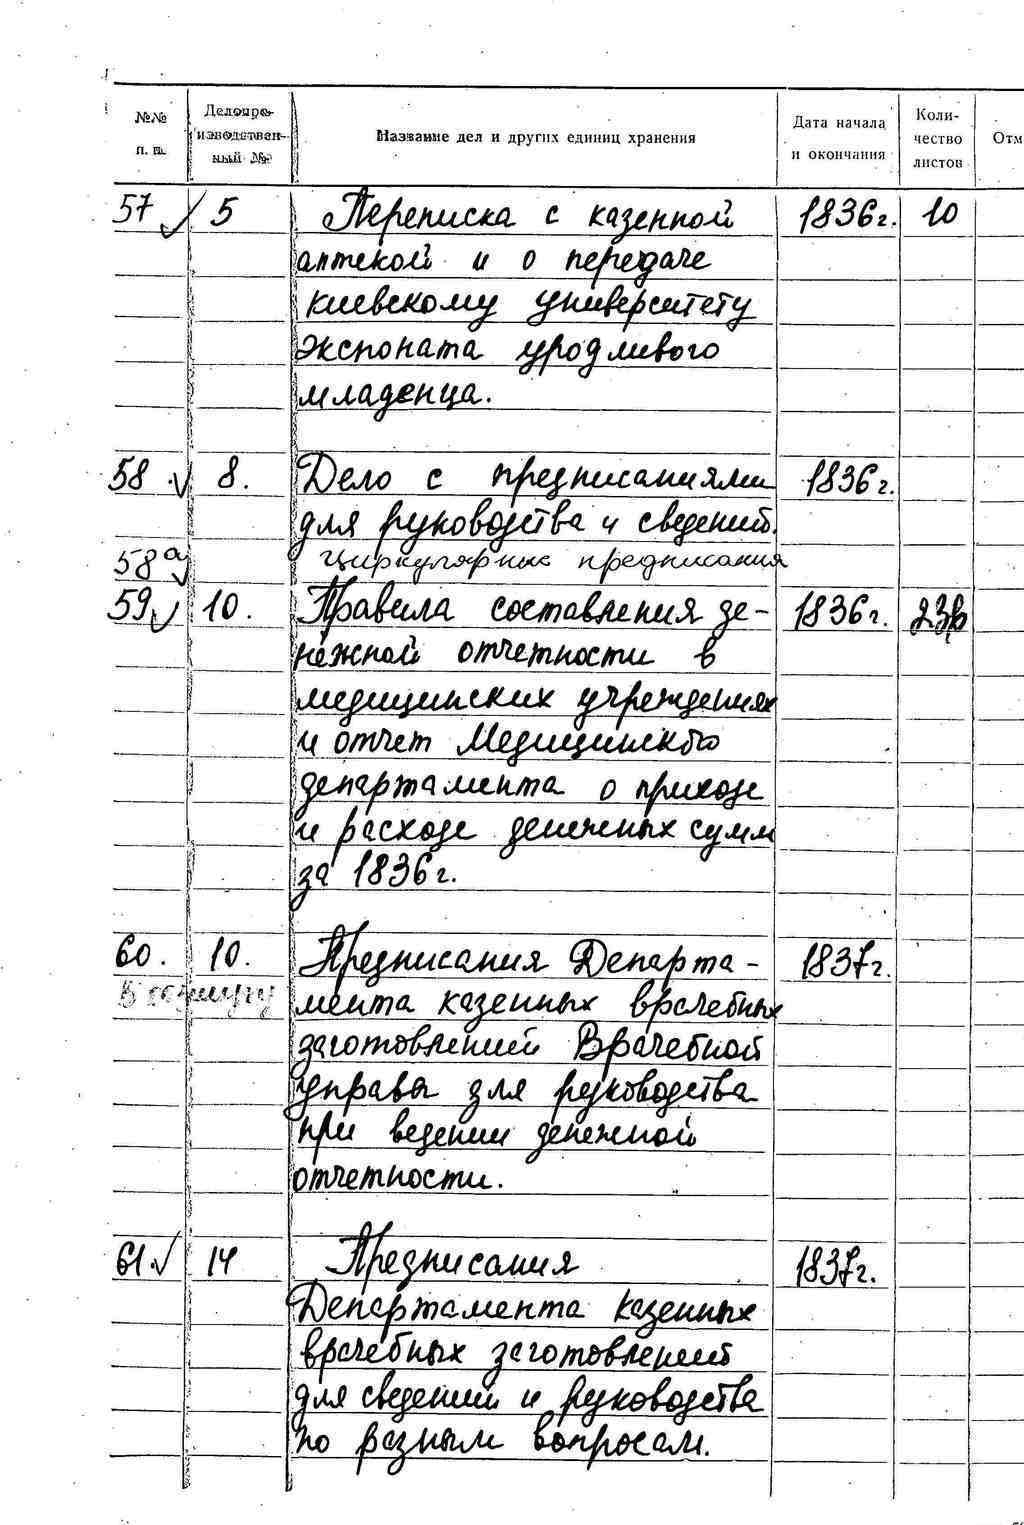 №№ п. п. Делопро- изводствен- ный № Название дел и других единиц хранения Дата начала и окончания Коли- чество листов Отм
57 5 Переписка с казенной 1836 г. 10
аптекой и о передаче
киевскому университету
экспоната уродливого
младенца.
58 8. Дело с предписаниями 1836 г.
для руководства и сведений.
58а Циркулярные предписания
59 10. Правила составления де- 1836 г.
нежной отчетности в
медицинских учреждениях
и отчет Медицинского
департамента о приходе
и расходе денежных сумм
за 1836 г.
60. 10. Предписания Департа- 1837 г.
мента казенных врачебных
заготовлений Врачебной
управы для руководства
при ведении денежной
отчетности.
61. 14 Предписания 1837 г.
Департамента казенных
врачебных заготовлений
для сведений и руководства
по разным вопросам.